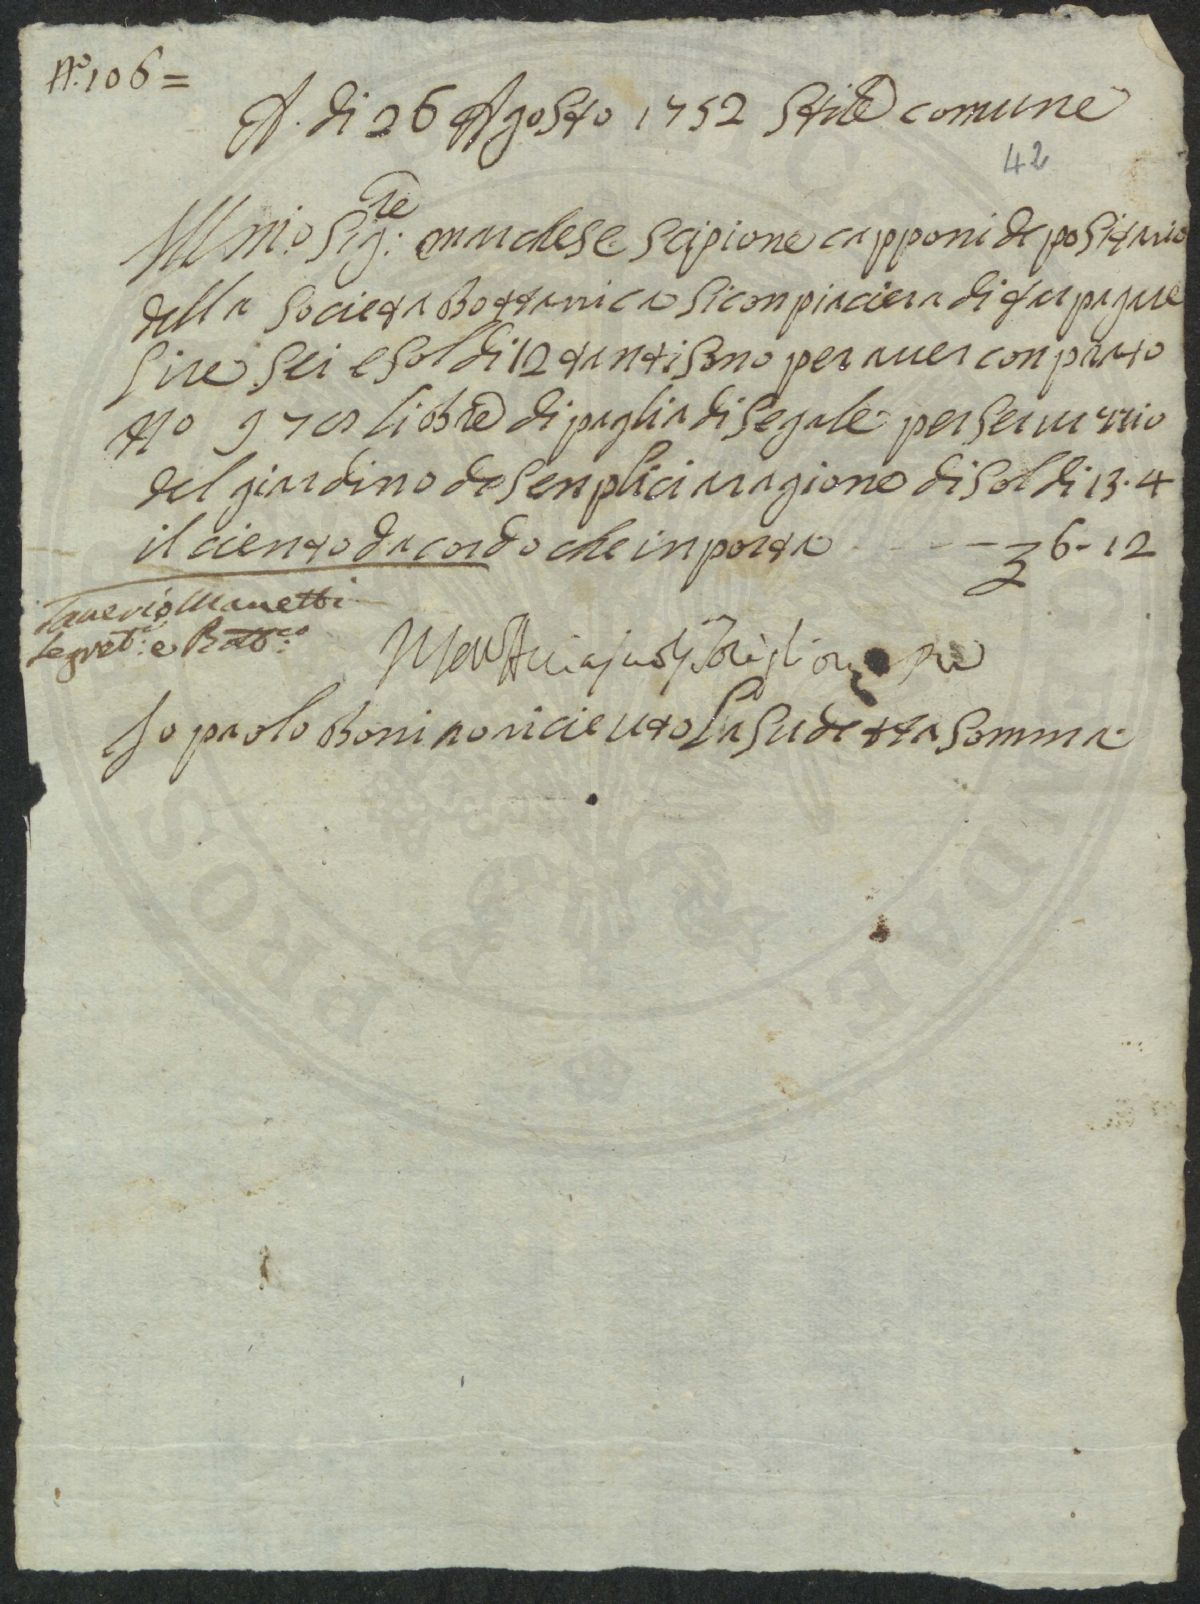 N.º 106 =
A. di 26 Agosto 1752 Stile comune
42
Ill mo. Sig:re marchese Scipione capponi depositario
della Societa Bottanica Si conpiaciera di far pagare
lire Sei e Soldi 12 tanti Sono per aver conprato
No 970 libre di paglia di Segale per Servizio
del giardino de Senplici a ragione di Soldi 13.4
il ciento dacordo che inporta - - - 6-12
Saverio Manetti
Segret:º e Bott:co
Io paolo Boni ho riceuto La Sudetta Somma